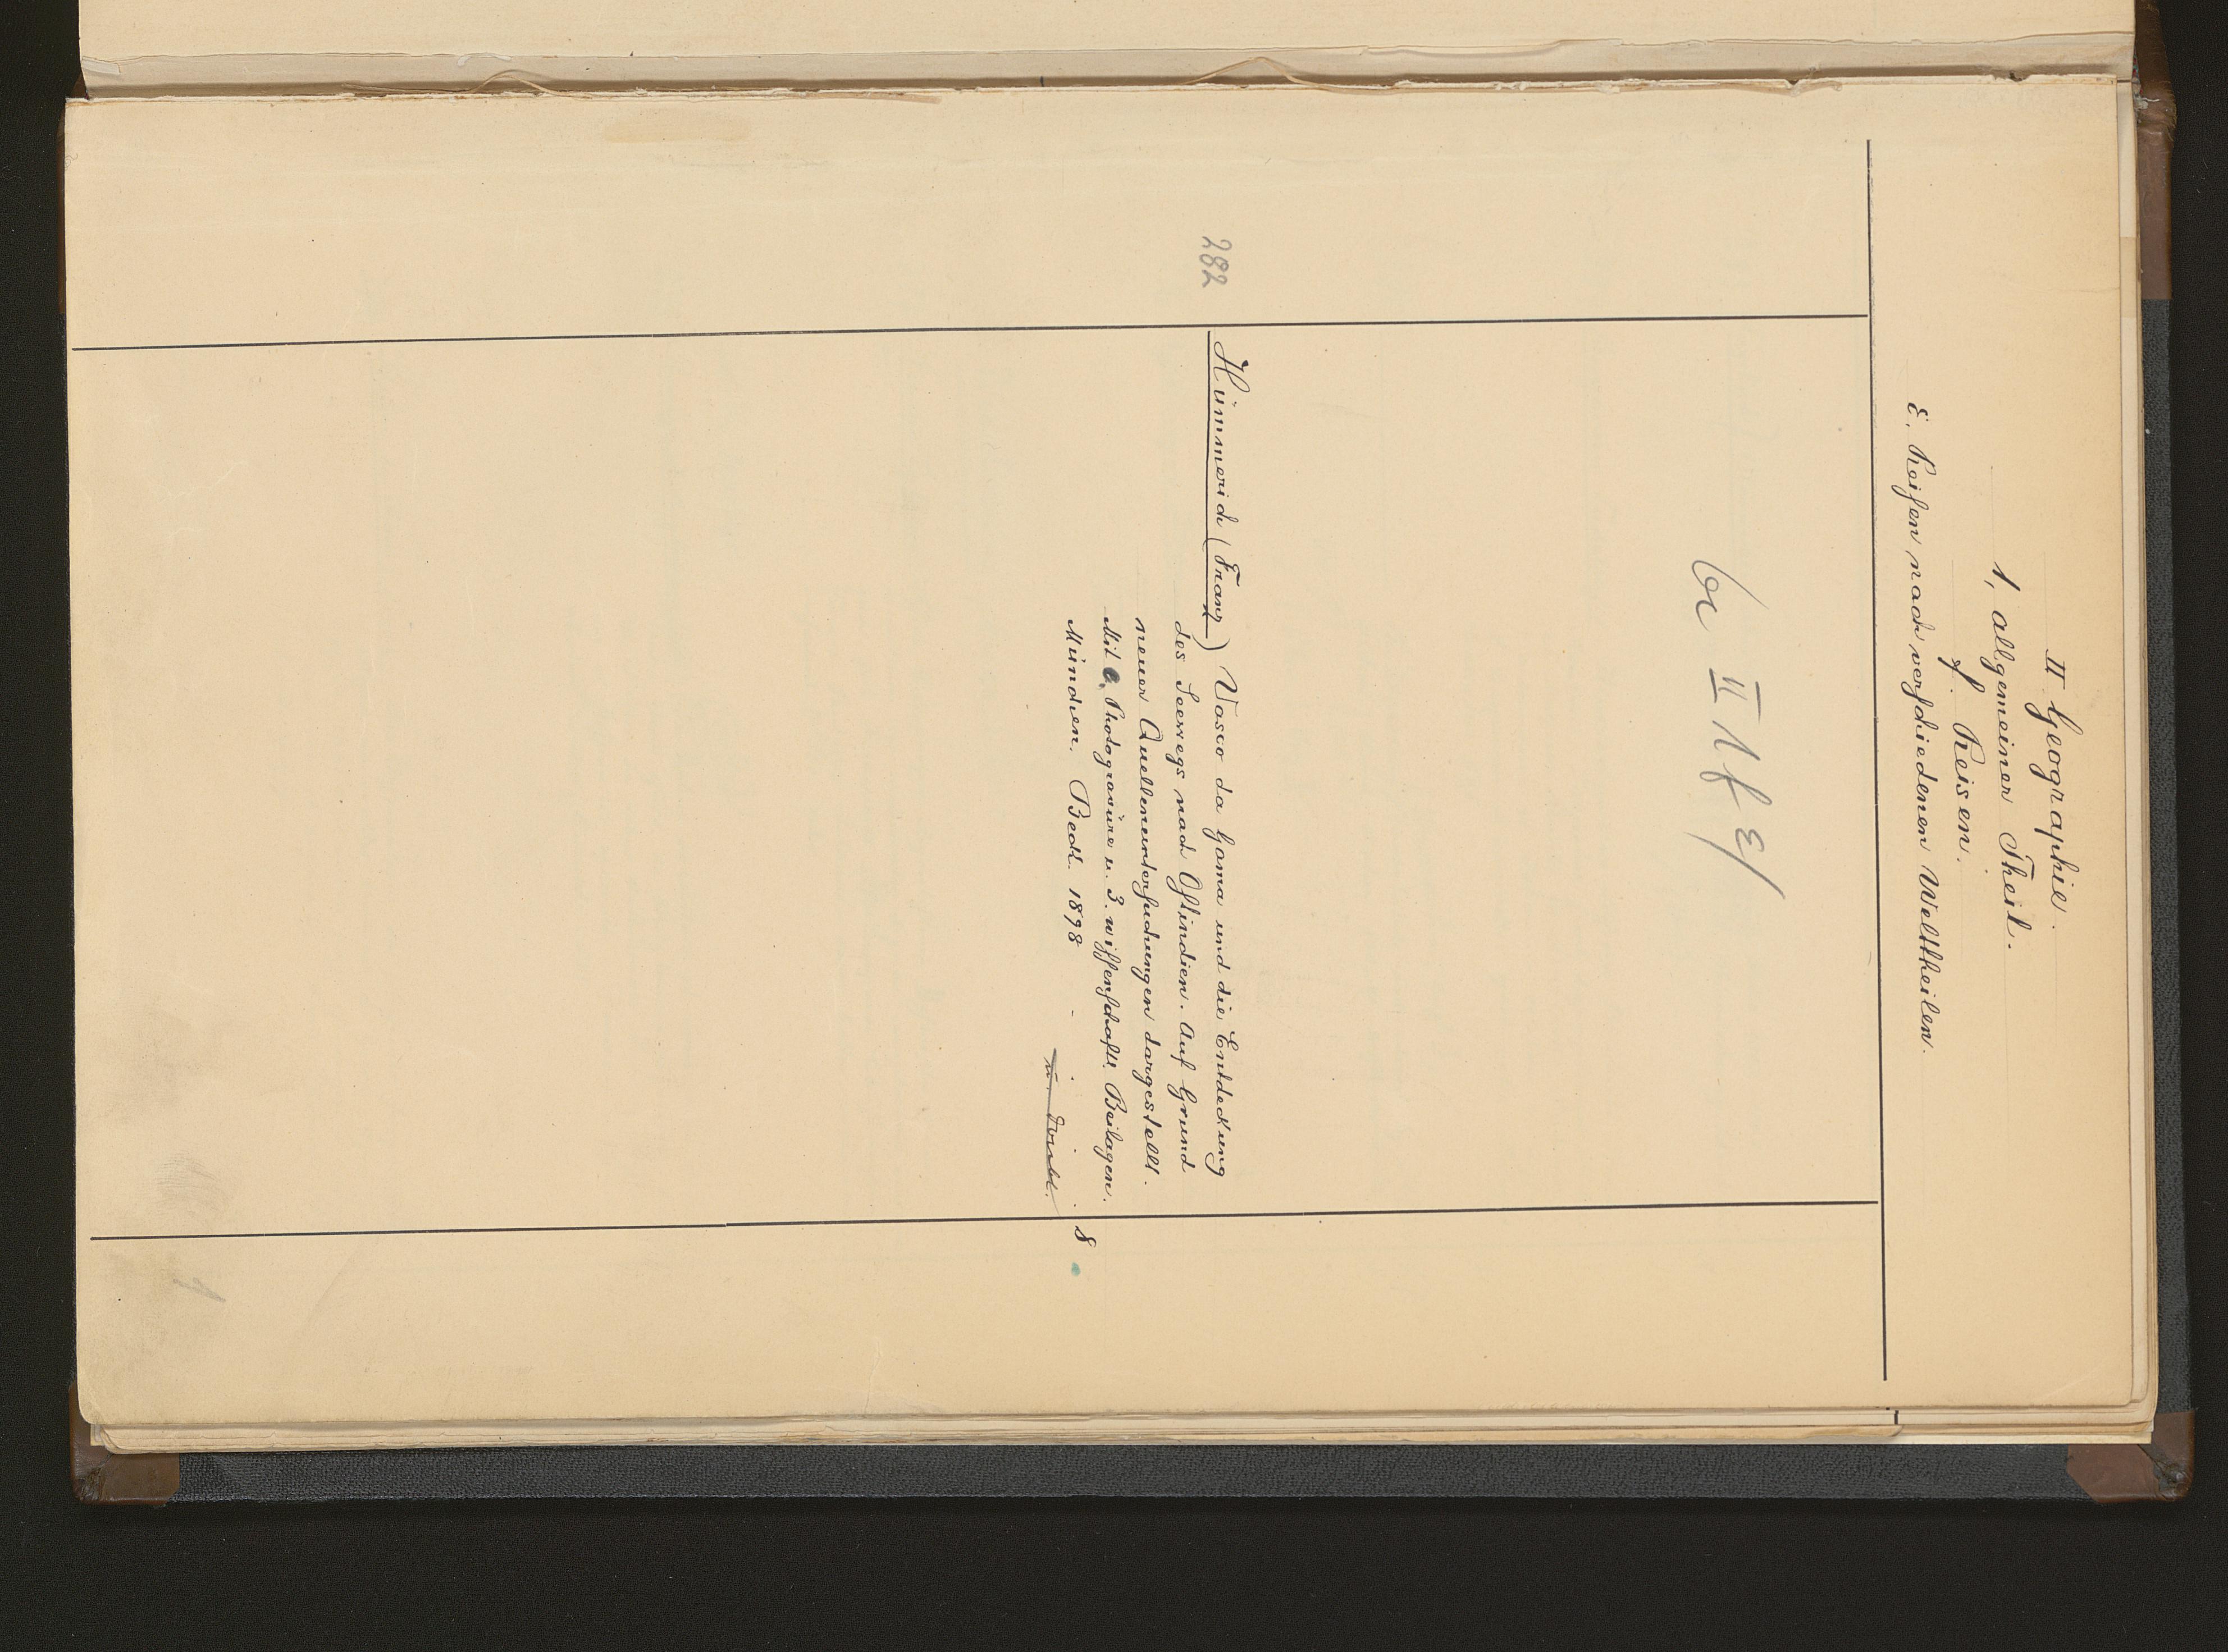 II Geographie.
1, allgemeiner Theil.
f. Reisen.
ε. Reisen nach verschiedenen Welttheilen.
II 1 f ε/
282
Hümmerich (Franz) Vasco da Gama und die Entdeckung
des Seewegs nach Ostindien. Auf Grund
neuer Quellenuntersuchungen dargestellt.
Mit Photogravüre u. 3. wissenschaftl. Beilagen.
München. Beck. 1898 - . . . 8